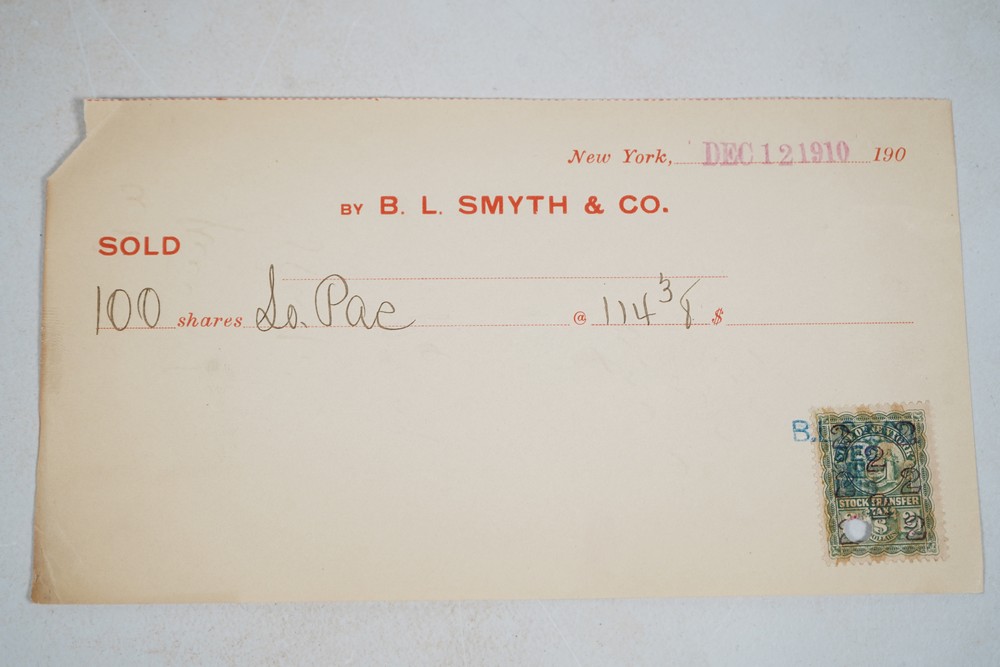 New York, DEC 12 1910 190
BY B. L. SMYTH & CO.
SOLD
100 shares So. Pac @ 114 3/8 $
B.
2 2
2
2 2
STOCK TRANSFER
2 2